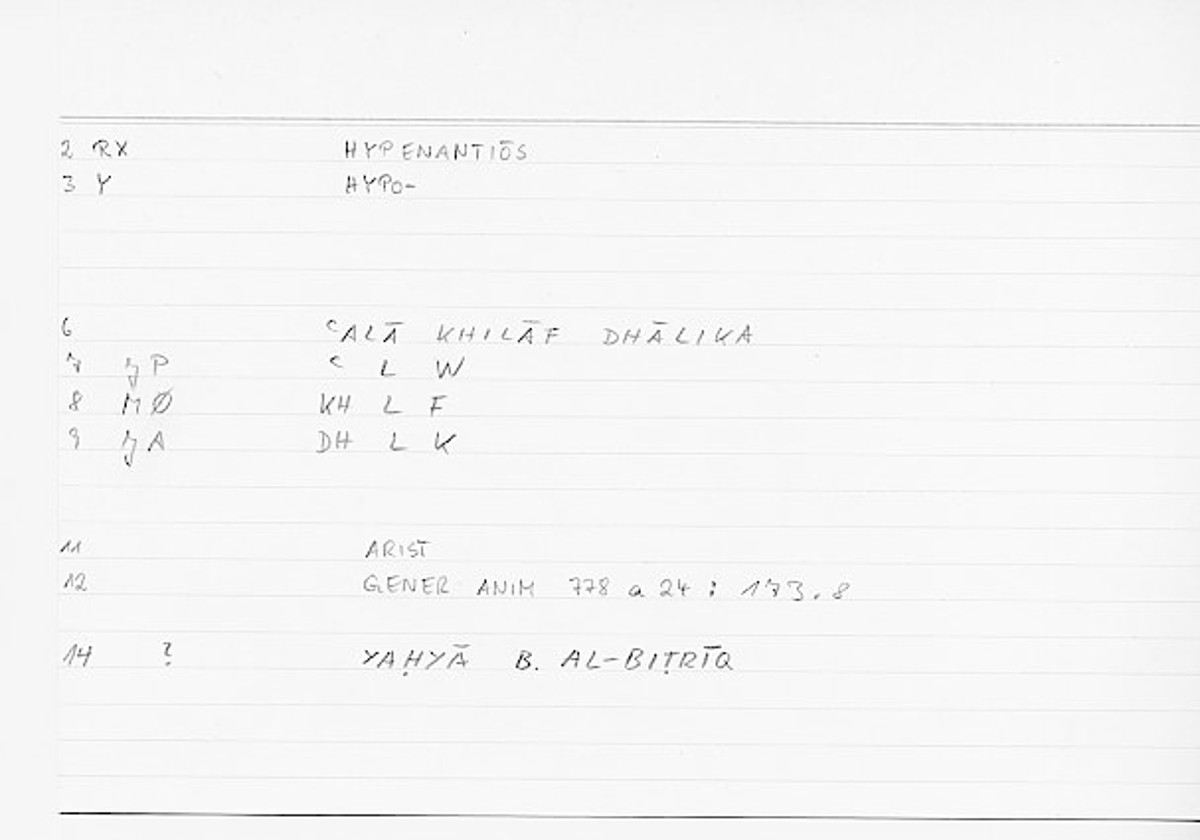 2 RX HYPENANTIŌS
3 Y HYPO-
6 ʿALĀ KHILĀF DHĀLIKA
7 ʿ L W
8 MØ KH L F
9 DH L K
11 ARIST
12 GENER ANIM 778 a 24 : 173.8
14 ? YAḤYĀ B. AL-BIṬRĪQ